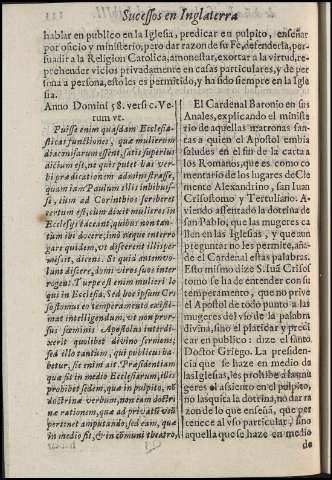 Sucessos en Inglaterra
hablar en publico en la Iglesia, predicar en pulpito, enseñar
por oficio y ministerio, pero dar razon de su Fè, defenderla, per-
suadir a la Religion Catolica, amonestar, exortar a la virtud, re-
prehender vicios privadamente en casas particulares, y de per
sona a persona, esto les es permitido, y ha sido siempre en la Igle
sia.
Anno Domini 58. vers. c. Ve-
rum vt.
Fuisse enim quasdam Ecclesia-
sticas functiones, quæ mulierum
diaconissarum essent, satis superius
dictum est, ne quis putet has ver-
bi prædicationem administrasse,
quam iam Paulum illis inhibuis-
se, cum ad Corinthios scriberet
certum est, cum dixit mulieres in
Ecclesijs taceant, quibus non tan-
tum ibi docere, imò neque interro-
gare quidem, vt discerent illis per
misit, dicens. Si quid autem vo-
lunt discere, domi viros suos inter
rogent. Turpe est enim mulieri lo
qui in Ecclesia. Sed hoc ipsum Cri
sostomus ex temperamento existi-
mat intelligendum, vt non pror-
sus fœminis Apostolus interdi-
xerit quolibet divino sermone;
sed illo tantùm, qui publicus ha-
betur, sic enim ait. Præsidentiam
quæ fit in medio Ecclesiarum, illis
prohibet sedem, quæ in pulpito, nō
doctrinæ verbum, non eam doctri
næ rationem, quæ ad privatū vsū
pertinet amputando; sed eam, quæ
in medio fit, & in cōmuni theatro,
El Cardenal Baronio en sus
Anales, explicando el ministe
rio de aquellas matronas san-
tas a quien el Apostol embia
saludes en el fin de la carta a
los Romanos, que es como co
mentario de los lugares de Cle
mente Alexandrino, san Iuan
Crisostomo y Tertuliano. A-
viendo assentado la dotrina de
san Pablo, que las mugeres ca
llen en las Iglesias, y que aun
preguntar no les permite, aña-
de el Cardenal estas palabras.
Esto mismo dize S. Iuā Crisos
tomo se ha de entender con su
temperamento, que no prive
el Apostol de todo punto a las
mugeres del vso de la palabra
divina, sino el platicar y predi
car en publico: dize el santo
Doctor Griego. La presiden-
cia que se haze en medio de
las Iglesias, les prohibe a las mu
geres el assiento en el pulpito,
no las quita la dotrina, no dar ra
zon de lo que enseña, que per
tenece al vso particular, sino
aquella que se haze en medio
de